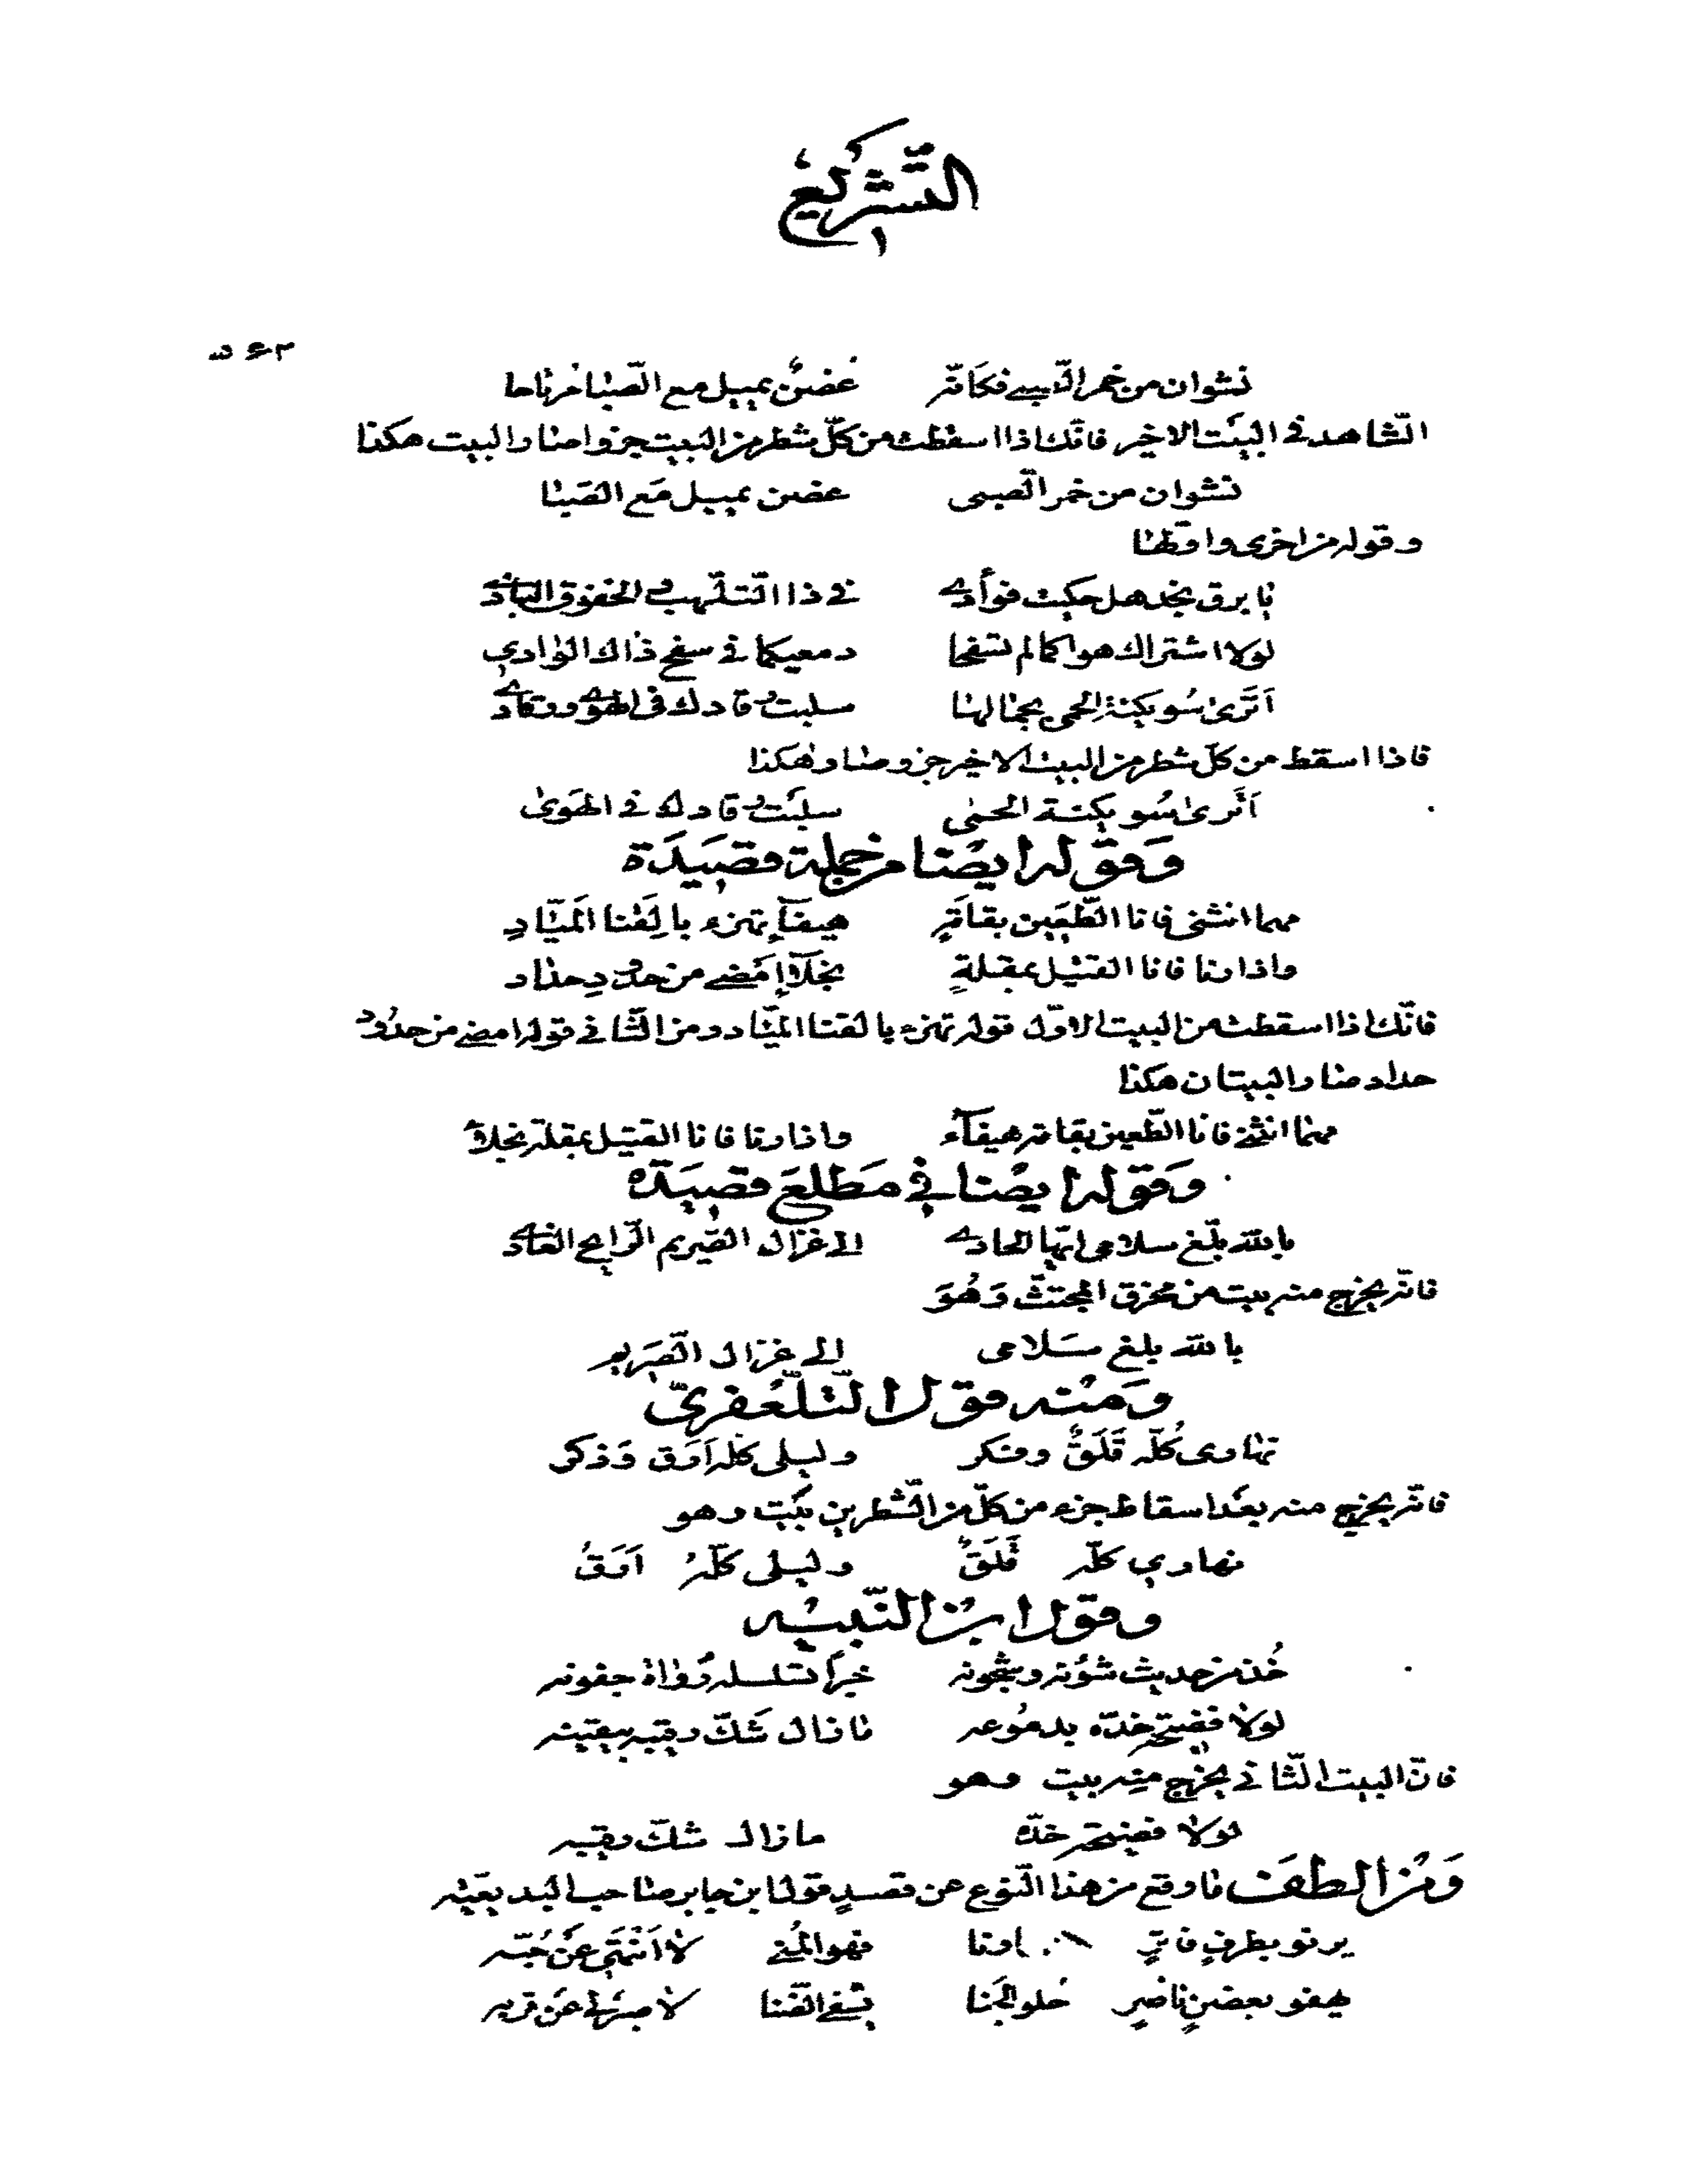 التشريع
نشوان من خمر الصبى فكانّه غصن يميل مع الصّبا مرتاحا
الشاهد فى البيت الاخير فانّك اذا اسقطت من كلّ شطر من البيت جزوا صار البيت هكذا
نشوان من خمر الصبى غصن يميل مع الصبا
وقوله من اخرى واوّلها
يا برق نجد هل حكيت فوأدي فى ذا التلهّب والخفوق البادي
لولا اشتراك هواكما لم تسفحا دمعيكما فى سفح ذاك الوادي
اَترى سُويكنة الحمى بجمالها سلبت رقادك فى الهوى ورقادي
فاذا اسقط من كلّ شطر من البيت الاخير جزو صار هكذا
اَترى سُويكنة الحمى سلبت رقادك فى الهوى
وقوله ايضا من جملة قصيدة
مهما انثنى فانا الطّعين بقامةٍ هيفآء تهزء بالقنا الميّاد
واذا رنا فانا القتيل بمقلةٍ نجلآء امضى من حدود حداد
فانّك اذا اسقطت من البيت الاوّل قوله تهزء بالقنا الميّاد ومن الثّانى قوله امضى من حدود
حداد صار البيتان هكذا
مهما انثنى فانا الطّعين بقامة هيفآء واذا رنا فانا القتيل بمقلة نجلآء
وقوله ايضا فى مطلع قصيدة
بالله بلّغ سلامى ايّها الحادي الى غزال الصّريم الرّايح الغادي
فانّه يخرج منه بيت من مجزو المجتثّ وَهُوَ
بالله بلغ سَلامى الى غزال الصّريم
ومنه قول التلّعفرىّ
نهارى كلّه قَلَقٌ وفكر وليلى كلّه اَرَق وَذكر
فانّه يخرج منه بعد اسقاط جزء من كلّ من الشّطرين بيت وهو
نهاري كلّه قَلَقٌ وليلى كلّهُ اَرَقُ
وقول ابن النّبيه
خُذ من حديث شؤنه وشجونه خبراً تسلسله رُواة جفونه
لولا فضيحة خدّه بدموعه ما زال شكّ رقيبه بيقينه
فانّ البيت الثّانى يخرج منه بيت وهو
لولا فضيحة خدّه ما زال شكّ رقيبه
وَمن الطف ما وقع من هذا النّوع عن قصدٍ قول ابن جابر صاحب البديعيّه
يرنو بطرفٍ فاترٍ مهما رنا فهو المُنى لا اَنْتَهى عَنْ حُبّه
يهفو بغصنٍ ناضرٍ حُلو الجَنا يشفى الضّنا لا صبرَ لى عَن قربه